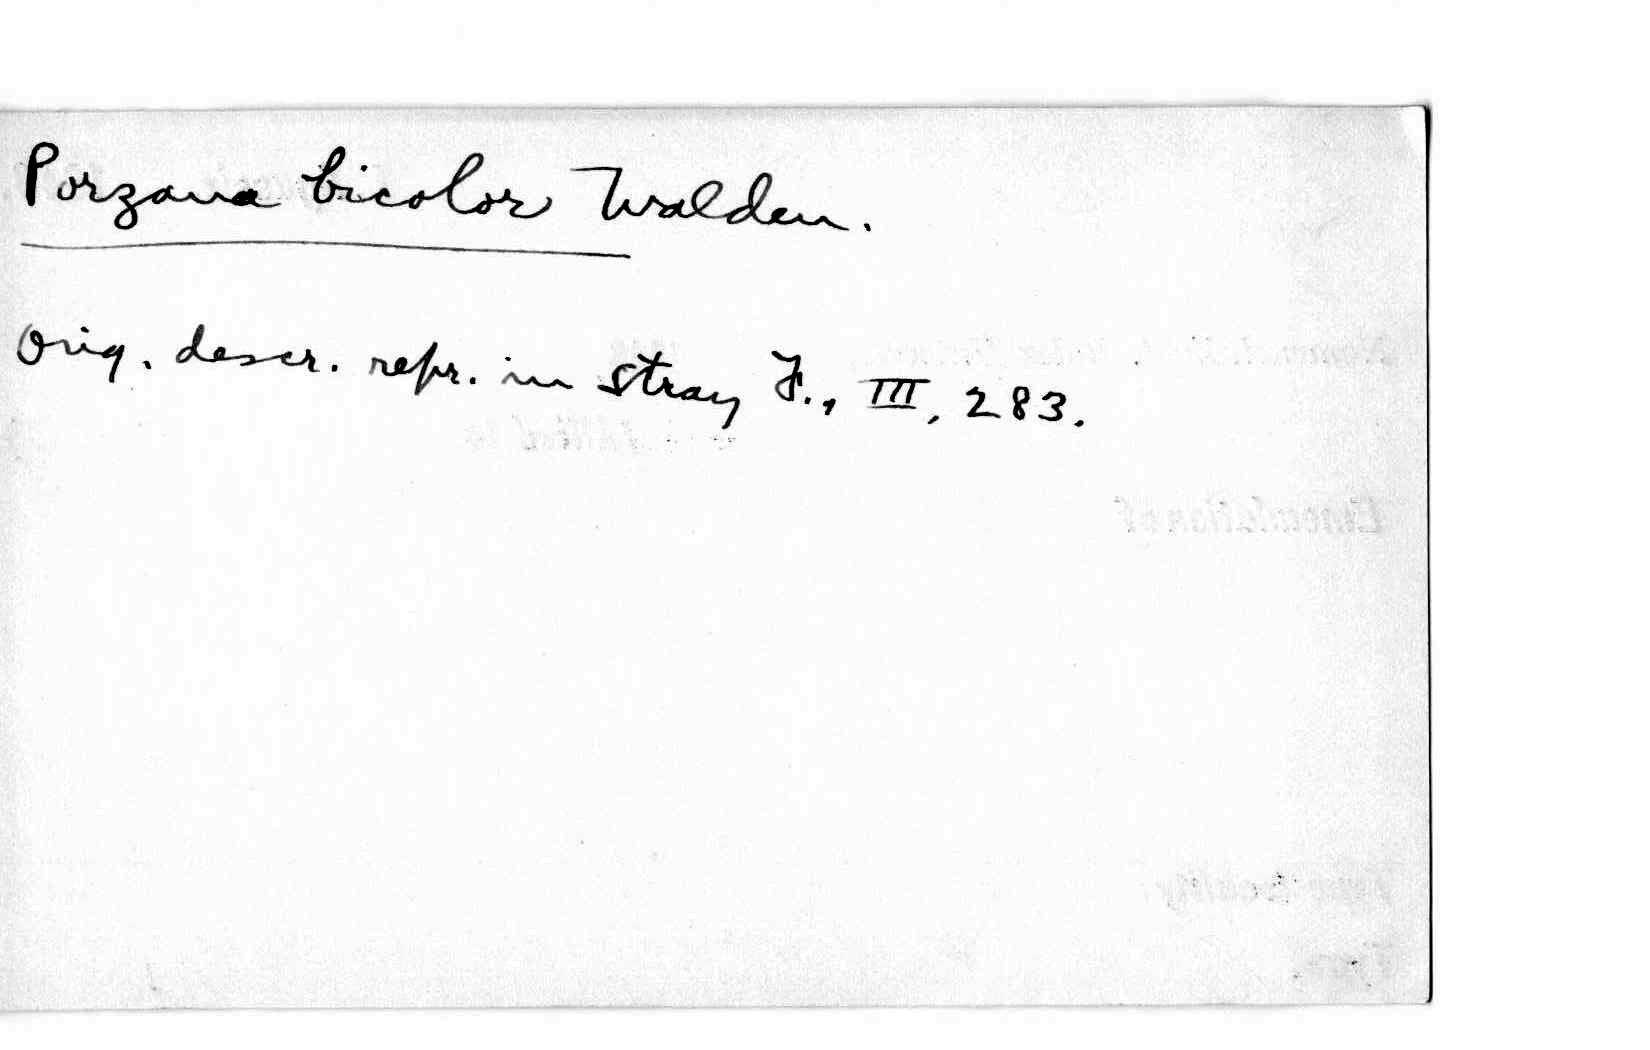 Porzana bicolor Walden.
Orig. descr. repr. in Stray F., III, 283.